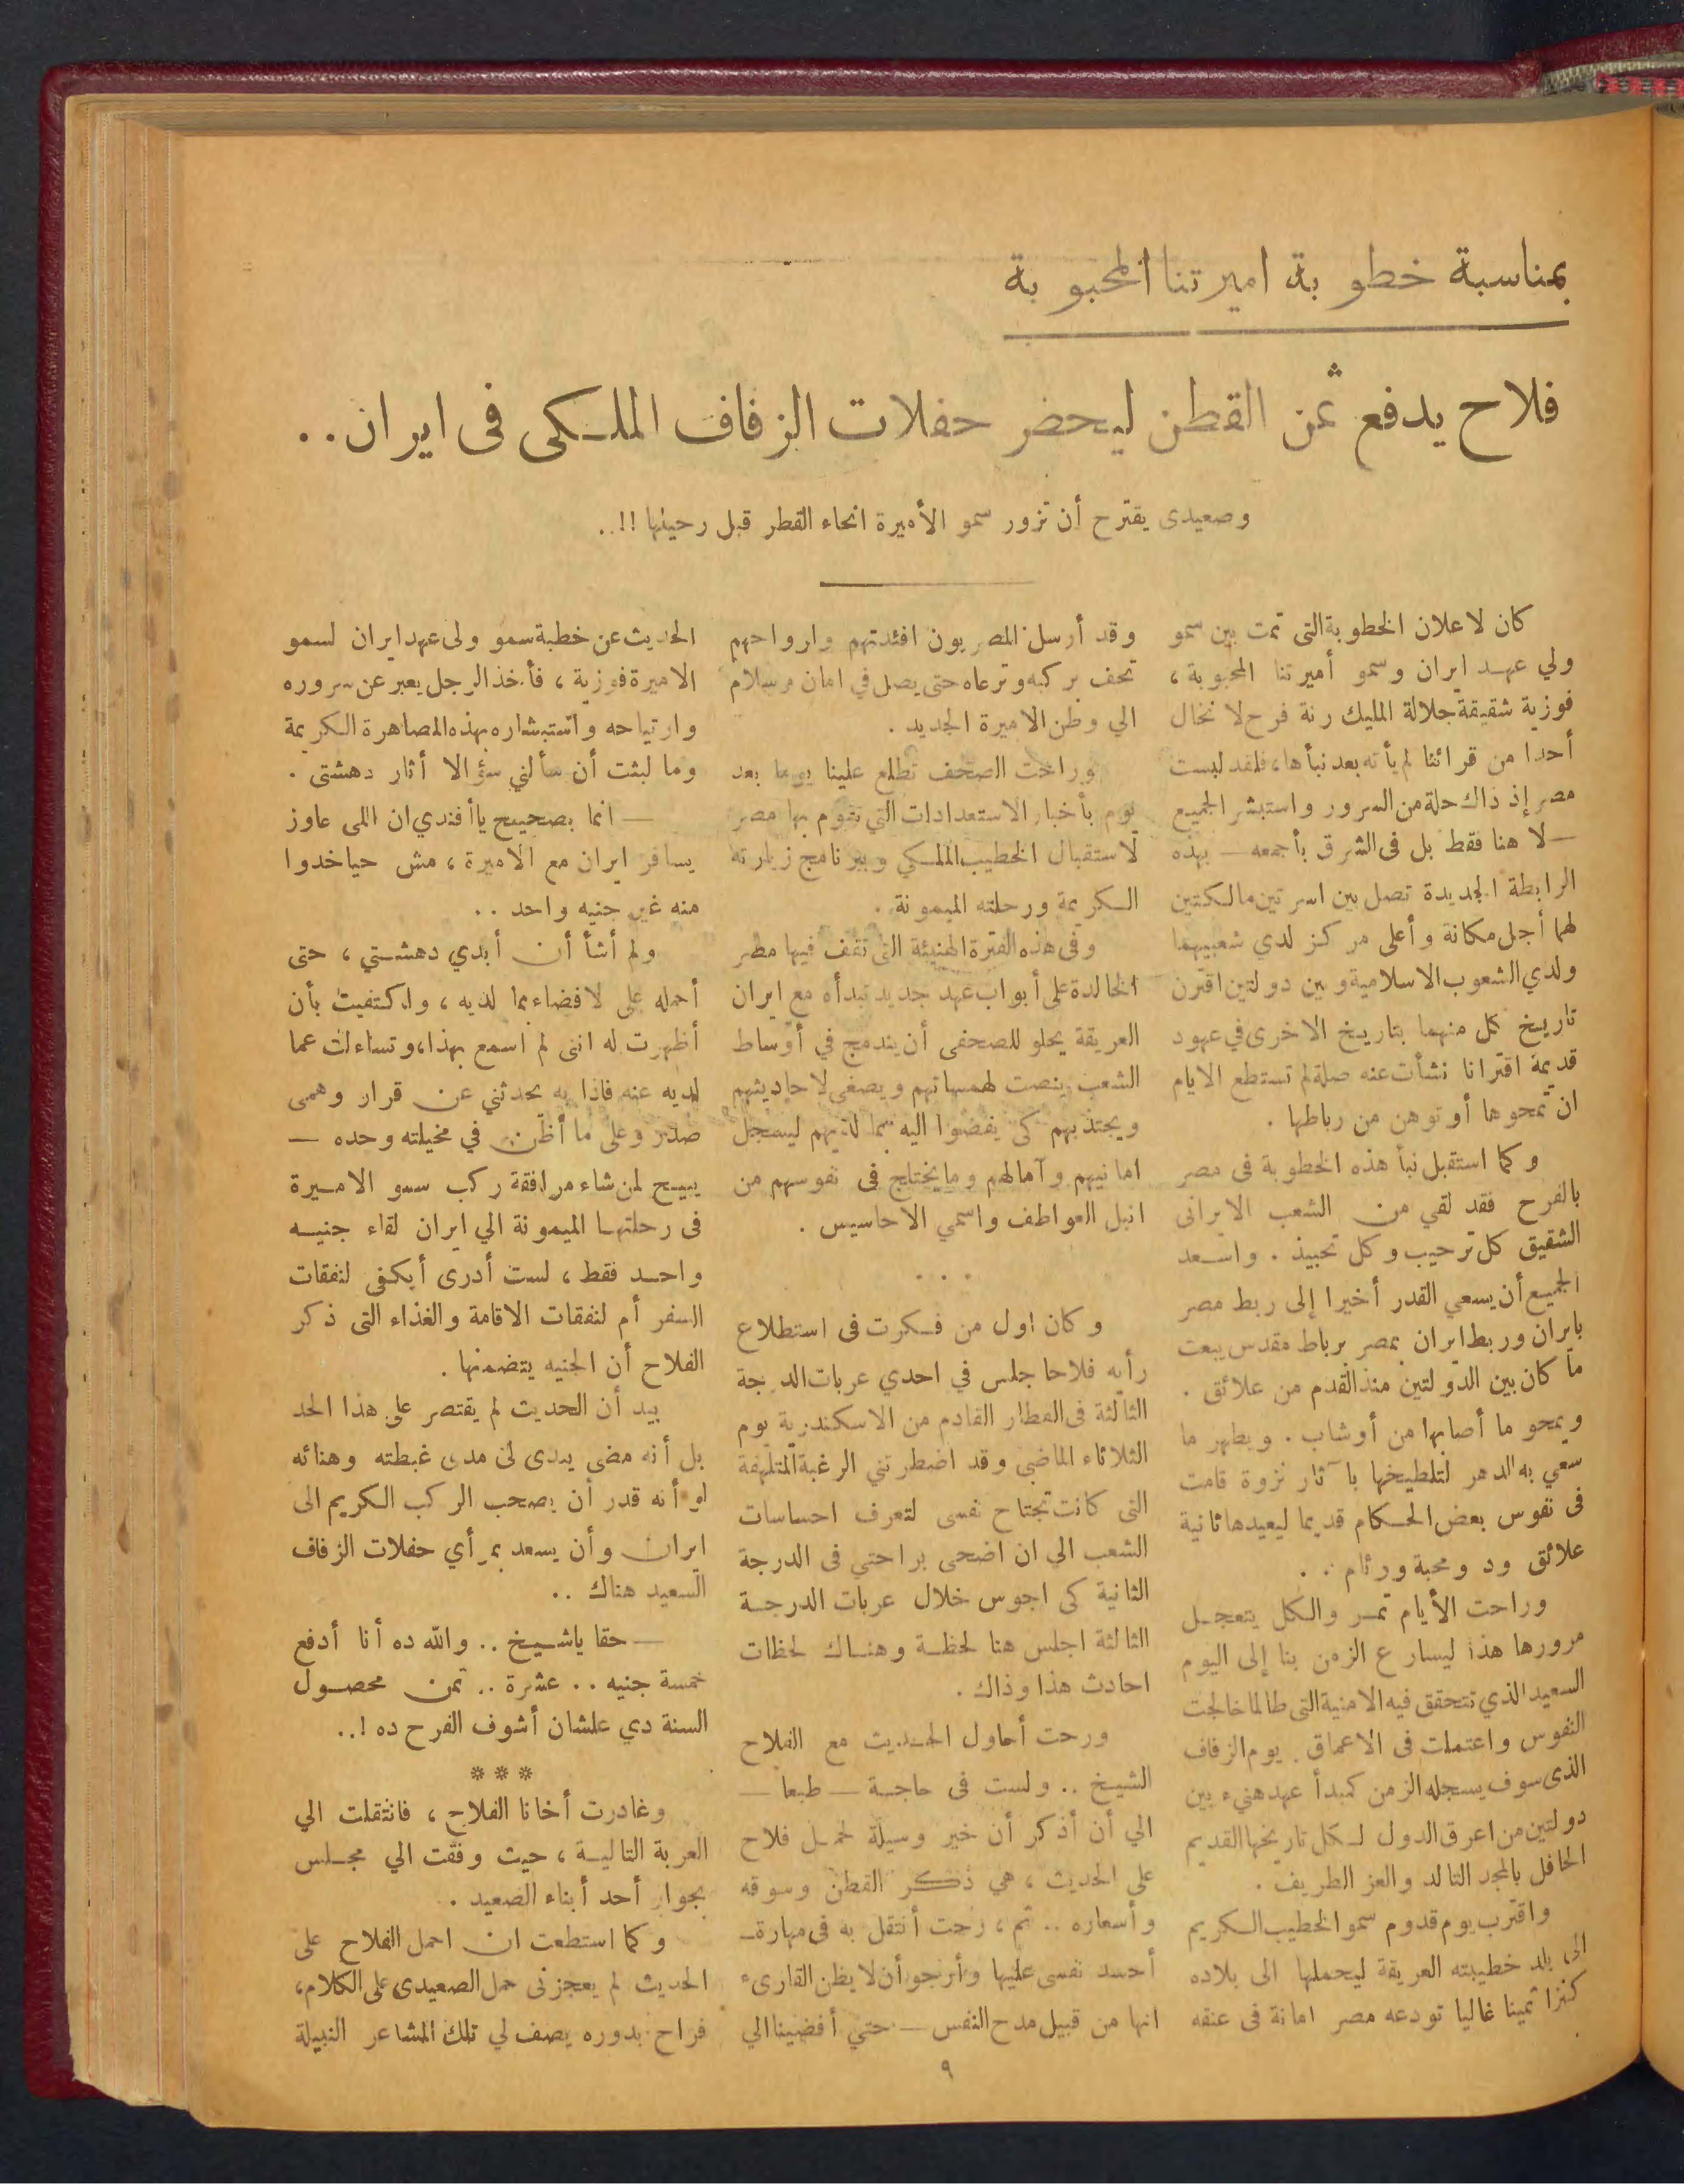 بمناسبة خطوبة اميرتنا المحبوبة
فلاح يدفع ثمن القطن ليحضر حفلات الزفاف الملكى فى ايران . .
وصعيدى يقترح أن تزور سمو الأميرة انحاء القطر قبل رحيلها !! . .
كان لاعلان الخطوبة التى تمت بين سمو
ولي عهد ايران وسمو أميرتنا المحبوبة ،
فوزية شقيقة جلالة المليك رنة فرح لا نخال
أحدا من قرائنا لم يأته بعد نبأها ، فلقد لبست
مصر إذ ذاك حلة من السرور واستبشر الجميع
— لا هنا فقط بل فى الشرق بأجمعه — بهذه
الرابطة الجديدة تصل بين اسرتين مالكتين
لهما أجل مكانة وأعلى مركز لدي شعبيهما
ولدي الشعوب الاسلامية وبين دولتين اقترن
تاريخ كل منهما بتاريخ الاخرى في عهود
قديمة اقترانا نشأت عنه صلة لم تستطع الايام
ان تمحوها أو توهن من رباطها .
وكما استقبل نبأ هذه الخطوبة فى مصر
بالفرح فقد لقي من الشعب الايرانى
الشقيق كل ترحيب وكل تحبيذ . واسعد
الجميع أن يسعي القدر أخيرا إلى ربط مصر
بايران وربط ايران بمصر برباط مقدس يبعث
ما كان بين الدولتين منذ القدم من علائق .
ويمحو ما أصابها من أوشاب . ويطهر ما
سعي به الدهر لتلطيخها بآثار نزوة قامت
فى نفوس بعض الحكام قديما ليعيدها ثانية
علائق ود ومحبة ووئام . .
وراحت الأيام تمر والكل يتعجل
مرورها هذا ليسارع الزمن بنا إلى اليوم
السعيد الذي تتحقق فيه الامنية التى طالما خالجت
النفوس واعتملت فى الاعماق . يوم الزفاف
الذى سوف يسجله الزمن كمبدأ عهد هنيء بين
دولتين من اعرق الدول لكل تاريخها القديم
الحافل بالمجد التالد والعز الطريف .
واقترب يوم قدوم سمو الخطيب الكريم
الى بلد خطيبته العريقة ليحملها الى بلاده
كنزا ثمينا غاليا تودعه مصر امانة فى عنقه
وقد أرسل المصريون افئدتهم وارواحهم
تحف بركبه وترعاه حتى يصل في امان وسلام
الي وطن الاميرة الجديد .
وراحت الصحف تطلع علينا يوما بعد
يوم بأخبار الاستعدادات التي تقوم بها مصر
لاستقبال الخطيب الملكي وبيرنامج زيارته
الكريمة ورحلته الميمونة .
وفى هذه الفترة الهنيئة التى تقف فيها مصر
الخالدة على أبواب عهد جديد تبدأه مع ايران
العريقة يحلو للصحفى أن يندمج في أوساط
الشعب ينصت لهمساتهم ويصغى لاحاديثهم
ويجتذبهم كى يفضوا اليه بما لديهم ليسجل
امانيهم وآمالهم وما يختلج فى نفوسهم من
انبل العواطف واسمي الاحاسيس .
. . .
وكان اول من فكرت فى استطلاع
رأيه فلاحا جلس في احدي عربات الدرجة
الثالثة فى القطار القادم من الاسكندرية يوم
الثلاثاء الماضي وقد اضطرتني الرغبة المتلهفة
التى كانت تجتاح نفسى لتعرف احساسات
الشعب الي ان اضحى براحتي فى الدرجة
الثانية كى اجوس خلال عربات الدرجة
الثالثة اجلس هنا لحظة وهناك لحظات
احادث هذا وذاك .
ورحت أحاول الحديث مع الفلاح
الشيخ .. ولست فى حاجة — طبعا —
الي أن أذكر أن خير وسيلة لحمل فلاح
على الحديث ، هي ذكر القطن وسوقه
وأسعاره .. ثم ، رحت أنتقل به فى مهارة —
أحسد نفسى عليها وأرجو أن لا يظن القارىء
انها من قبيل مدح النفس — حتي أفضينا الي
الحديث عن خطبة سمو ولى عهد ايران لسمو
الاميرة فوزية ، فأخذ الرجل يعبر عن سروره
وارتياحه واستبشاره بهذه المصاهرة الكريمة
وما لبثت أن سألني سؤالا أثار دهشتى .
— انما بصحيح ياأفندي ان اللى عاوز
يسافر ايران مع الاميرة ، مش حياخدوا
منه غير جنيه واحد . .
ولم أشأ أن أبدي دهشتي ، حتى
أحمله على لافضاء بما لديه ، واكتفيت بأن
أظهرت له انى لم اسمع بهذا ، وتساءلت عما
لديه عنه فاذا به يحدثني عن قرار وهمى
صدر وعلى ما أظن في مخيلته وحده —
يبيح لمن شاء مرافقة ركب سمو الاميرة
فى رحلتها الميمونة الي ايران لقاء جنيه
واحد فقط ، لست أدرى أيكفى لنفقات
السفر أم لنفقات الاقامة والغذاء التى ذكر
الفلاح أن الجنيه يتضمنها .
بيد أن الحديث لم يقتصر على هذا الحد
بل أنه مضى يبدى لى مدى غبطته وهنائه
لو أنه قدر أن يصحب الركب الكريم الى
ايران وأن يسعد بمرأي حفلات الزفاف
السعيد هناك . .
— حقا ياشيخ .. والله ده أنا أدفع
خمسة جنيه .. عشرة .. تمن محصول
السنة دي علشان أشوف الفرح ده ! . .
* * *
وغادرت أخانا الفلاح ، فانتقلت الي
العربة التالية ، حيث وفقت الي مجلس
بجوار أحد أبناء الصعيد .
وكما استطعت ان احمل الفلاح على
الحديث لم يعجزنى حمل الصعيدى على الكلام ،
فراح بدوره يصف لي تلك المشاعر النبيلة
٩